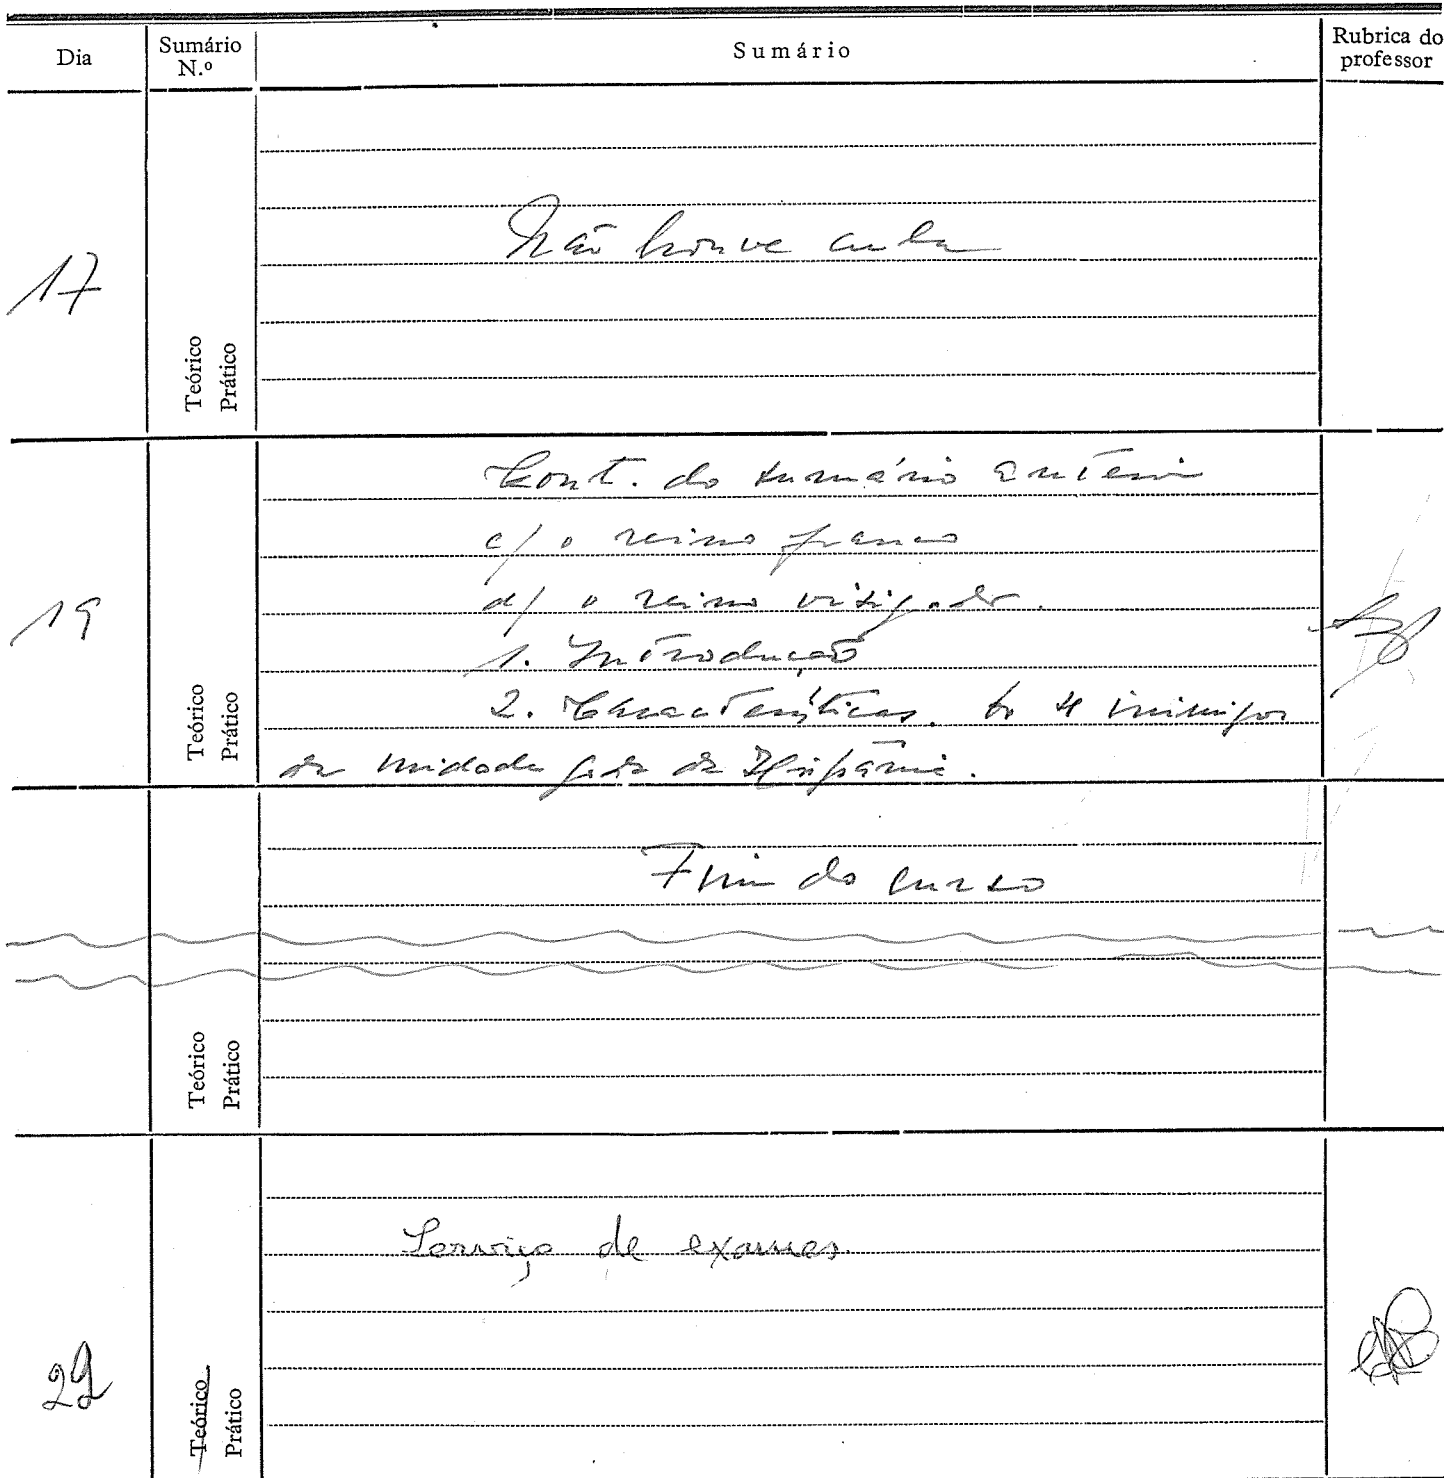 Dia Sumário N.º Sumário Rubrica do professor
17 Teórico Prático
Não houve aula
19 Teórico Prático
Cont. do sumário anterior
c/ o reino franco
d/ o reino visigodo.
1. Introdução
2. Características. Os 4 inimigos
da unidade goda da Hispânia.
Teórico Prático
Fim do curso
29 Teórico Prático
Serviço de exames